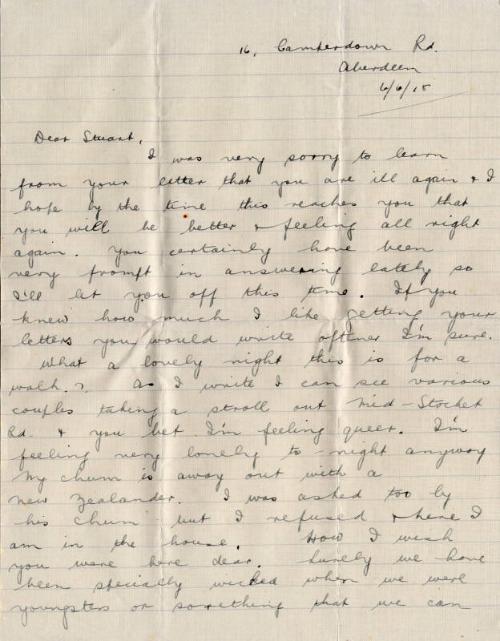 16, Camperdown Rd.
Aberdeen
6/6/18
Dear Stuart,
I was very sorry to learn
from your letter that you are ill again & I
hope by the time this reaches you that
you will be better & feeling all right
again. You certainly have been
very prompt in answering lately so
I'll let you off this time. If you
knew how much I like getting your
letters you would write oftener I'm sure.
What a lovely night this is for a
walk.? As I write I can see various
couples taking a stroll out Mid-Stocket
Rd. & you bet I'm feeling queer. I'm
feeling very lonely to-night anyway
my chum is away out with a
New Zealander. I was asked too by
his chum but I refused & here I
am in the house. How I wish
you were here dear. Surely we have
been specially wicked when we were
youngsters or something that we can